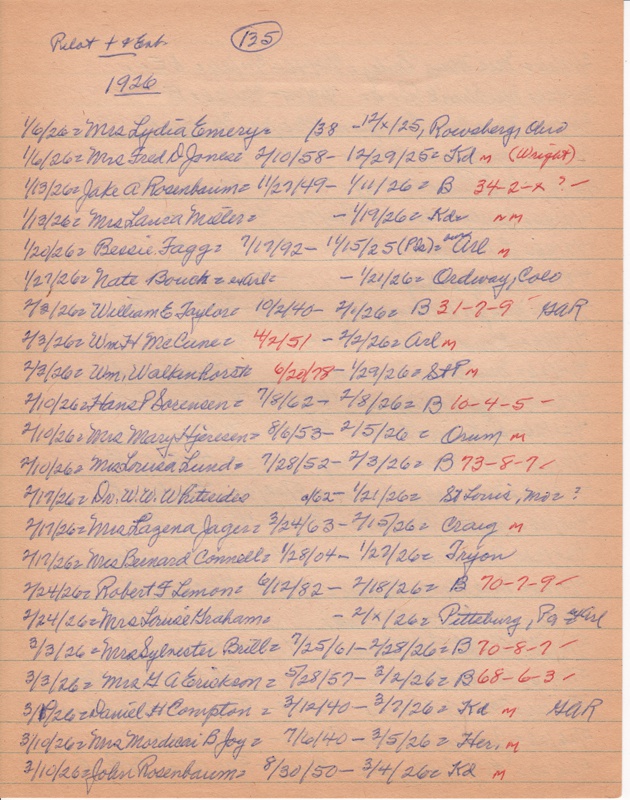 Pilot + & Ent. 135
1926
1/6/26 = Mrs Lydia Emery = /38 - 12/x/25, Rowsberg, Ohio
1/6/26 = Mrs Fred D Jones = 2/10/58 - 12/29/25 = Kd m (Wright)
1/13/26 = Jake A Rosenbaum = 11/27/49 - 1/11/26 = B 34-2-x ? -
1/13/26 = Mrs Laura = - 1/19/26 = Kd = nm
1/20/26 = Bessie Fagg = 7/17/92 - 11/15/25 = Arl m
1/27/26 = Nate Bouck = exArl = - 1/21/26 = Ordway, Colo
2/3/26 = William E Taylor = 10/2/40 - 2/1/26 = B 31-7-9 - GAR
2/3/26 = Wm H McCune = 4/2/51 - 2/2/26 = Arl m
2/3/26 = Wm. Walkenhorst 6/20/78 - 1/29/26 = St P m
2/10/26 = Hans P Sorensen = 7/8/62 - 2/8/26 = B 10-4-5 -
2/10/26 = Mrs Mary Hjeresen = 8/6/53 - 2/5/26 = Orum m
2/10/26 = Mrs Louisa Lund = 7/28/52 - 2/3/26 = B 73-8-7 -
2/17/26 = Dr. W.W. Whitesides /62 - 1/21/26 = St Louis, Mo = ?
2/17/26 = Mrs Lazena Jager = 3/24/63 - 2/15/26 = Craig m
2/17/26 = Mrs Bernard Connell = 1/28/04 - 1/27/26 = Tryon
2/24/26 = Robert F Lemon = 6/12/82 - 2/18/26 = B 70-7-9 -
2/24/26 = Mrs Louise Graham = - 2/x/26 = Pittsburg, Pa exArl
3/3/26 = Mrs Sylvester Brill = 7/25/61 - 2/28/26 = B 70-8-7 -
3/3/26 = Mrs G A Erickson = 5/28/57 - 3/2/26 = B 68-6-3 -
3/ /26 = Daniel H Compton = 3/12/40 - 3/7/26 = Kd m GAR
3/10/26 = Mrs Mordicai B Joy = 7/6/40 - 3/5/26 = Her, m
3/10/26 = John Rosenbaum = 8/30/50 - 3/4/26 = Kd m